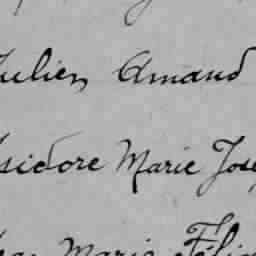 Julien Amand
Isidore Marie Jose
Marie Féli